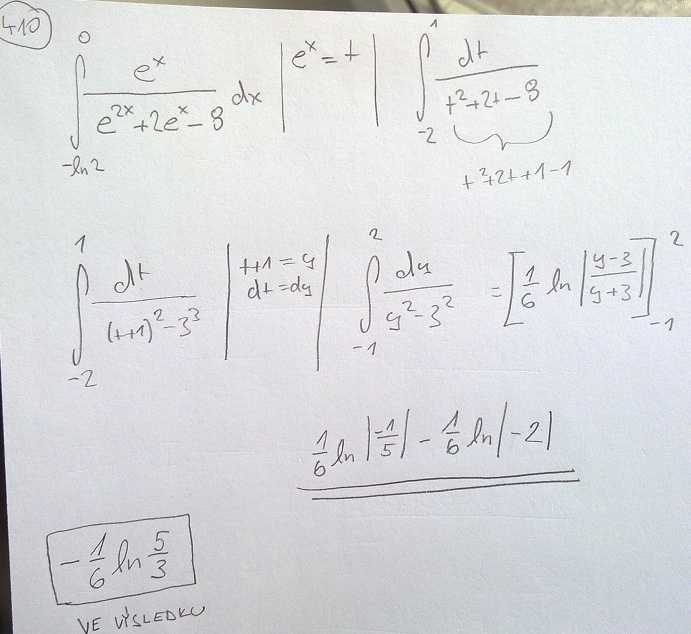 410
∫_{-ln2}^{0} e^x / (e^{2x}+2e^x-8) dx | e^x = t | ∫_{-2}^{1} dt / (t²+2t-8)
t²+2t+1-1
∫_{-2}^{1} dt / ((t+1)²-3³) | t+1 = y dt = dy | ∫_{-1}^{2} dy / (y²-3²) = [1/6 ln |(y-3)/(y+3)|]_{-1}^{2}
1/6 ln |-1/5| - 1/6 ln |-2|
-1/6 ln 5/3
VE VÝSLEDKU